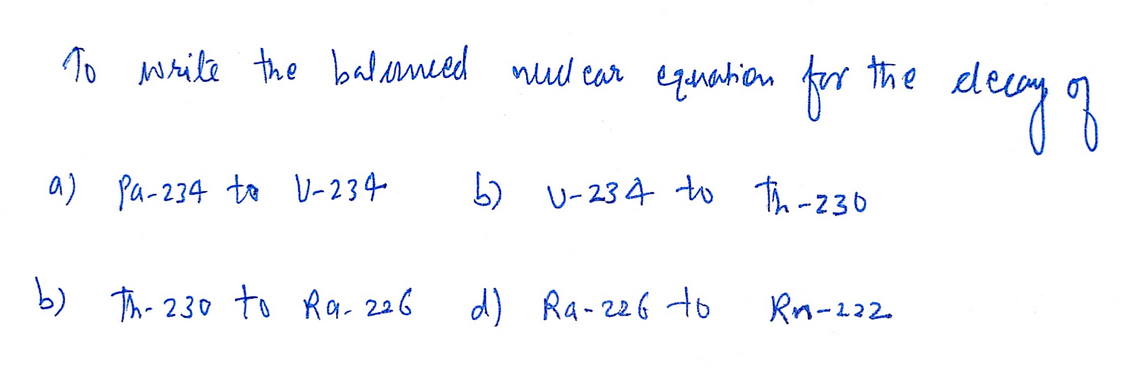 To write the balanced nuclear equation for the decay of
a) Pa-234 to U-234 b) U-234 to Th-230
b) Th-230 to Ra-226 d) Ra-226 to Rn-222